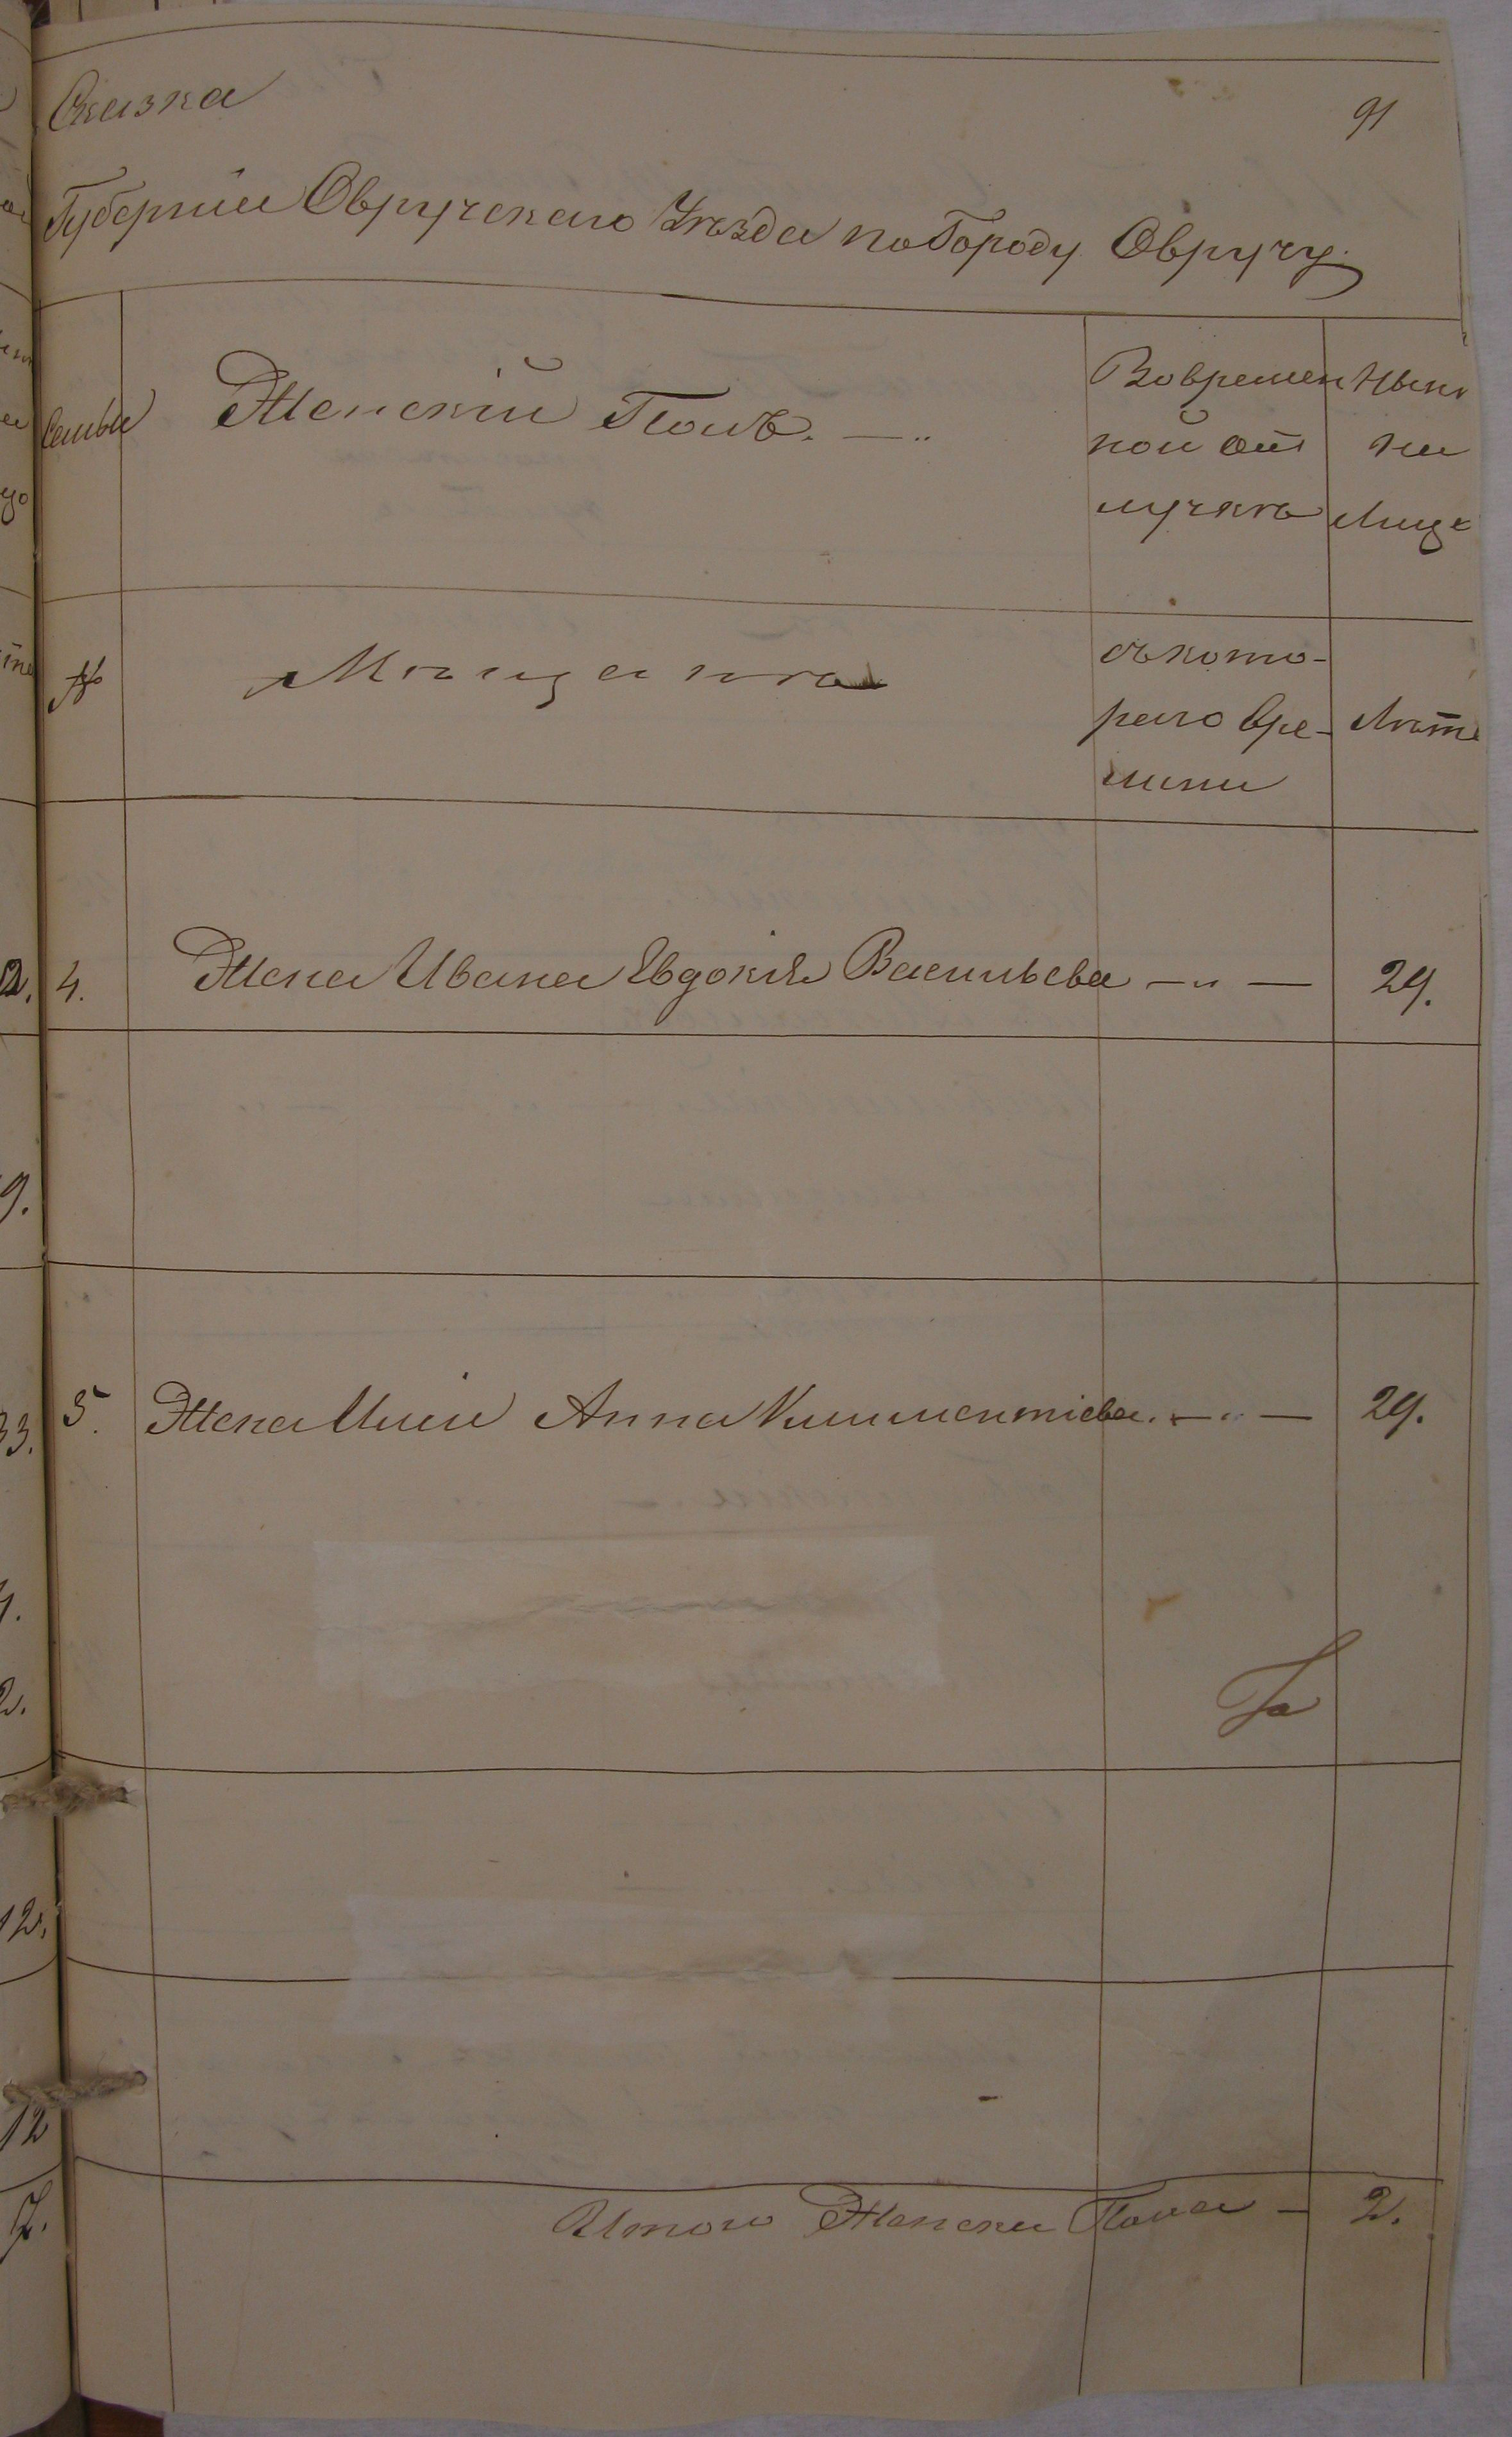 Сказка
91
Губернии Овручскаго Уѣзда по Городу Овручу.
Семьи
Женскій Полъ. — „
Во времен
ной от
лучкѣ
Нын
на
Лице
№
Мѣщанѣ
съ кото-
раго вре-
мени
Лѣт
2.
4.
Жена Ивана Евдокія Васильева — „ —
29.
9.
33.
5.
Жена Ильи Анна Климентіева. — „ —
29.
2.
12.
12
Итого Женска Пола —
2.
7.